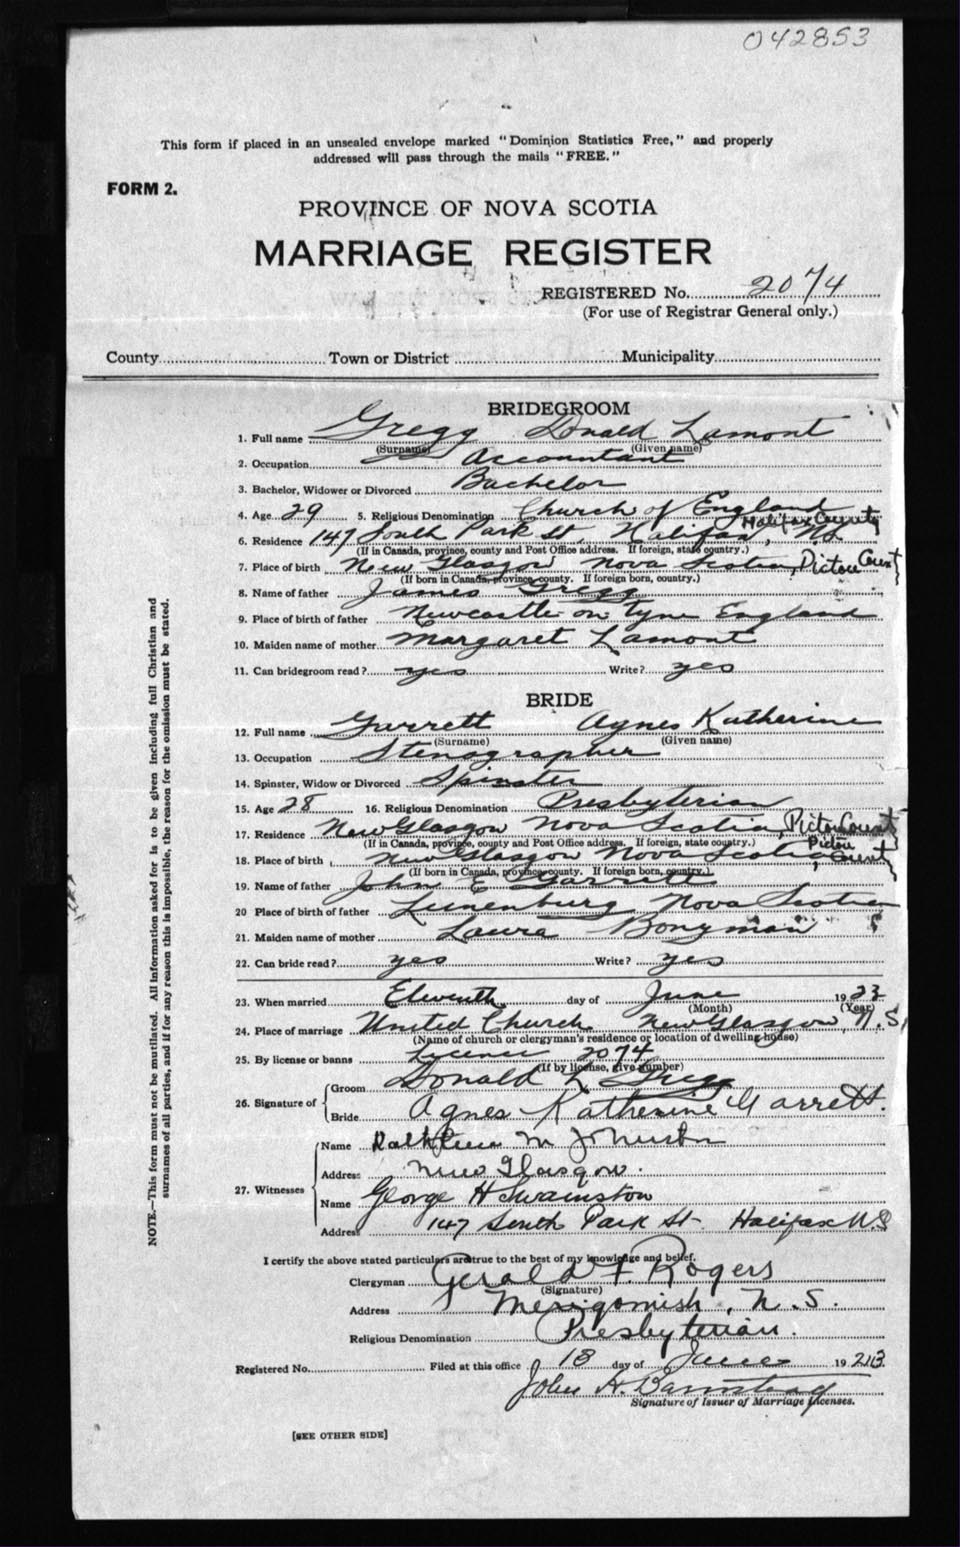 042853
This form if placed in an unsealed envelope marked "Dominion Statistics Free," and properly
addressed will pass through the mails "FREE."
FORM 2.
PROVINCE OF NOVA SCOTIA
MARRIAGE REGISTER
REGISTERED No. 2074
(For use of Registrar General only.)
County Town or District Municipality
BRIDEGROOM
1. Full name Gregg Donald Lamont
(Surname) (Given name)
2. Occupation Accountant
3. Bachelor, Widower or Divorced Bachelor
4. Age 29 5. Religious Denomination Church of England
Halifax County
6. Residence 147 South Park St, Halifax, NS
(If in Canada, province, county and Post Office address. If foreign, state country.)
7. Place of birth New Glasgow Nova Scotia, Pictou County
(If born in Canada, province, county. If foreign born, country.)
8. Name of father James Gregg
9. Place of birth of father Newcastle on Tyne England
10. Maiden name of mother Margaret Lamont
11. Can bridegroom read? yes Write? yes
BRIDE
12. Full name Garrett Agnes Katherine
(Surname) (Given name)
13. Occupation Stenographer
14. Spinster, Widow or Divorced Spinster
15. Age 28 16. Religious Denomination Presbyterian
17. Residence New Glasgow Nova Scotia, Pictou County
(If in Canada, province, county and Post Office address. If foreign, state country.)
18. Place of birth New Glasgow Nova Scotia, Pictou County
(If born in Canada, province, county. If foreign born, country.)
19. Name of father John E Garrett
20 Place of birth of father Lunenburg Nova Scotia
21. Maiden name of mother Laura Bonyman
22. Can bride read? yes Write? yes
23. When married Eleventh day of June 1923
(Month) (Year)
24. Place of marriage United Church New Glasgow, N.S.
(Name of church or clergyman's residence or location of dwelling house)
25. By license or banns Lycence 2074
(If by license, give number)
26. Signature of Groom Donald L Gregg
Bride Agnes Katherine Garrett.
27. Witnesses Name Kathleen M Johnston
Address New Glasgow.
Name George H Swainston
Address 147 South Park St. Halifax N.S
I certify the above stated particulars are true to the best of my knowledge and belief.
Clergyman Gerald F. Rogers
(Signature)
Address Merigomish, N.S.
Religious Denomination Presbyterian.
Registered No. Filed at this office 18 day of June 1923.
John H.
Signature of Issuer of Marriage Licenses.
[SEE OTHER SIDE]
NOTE.—This form must not be mutilated. All information asked for is to be given including full Christian and
surnames of all parties, and if for any reason this is impossible, the reason for the omission must be stated.